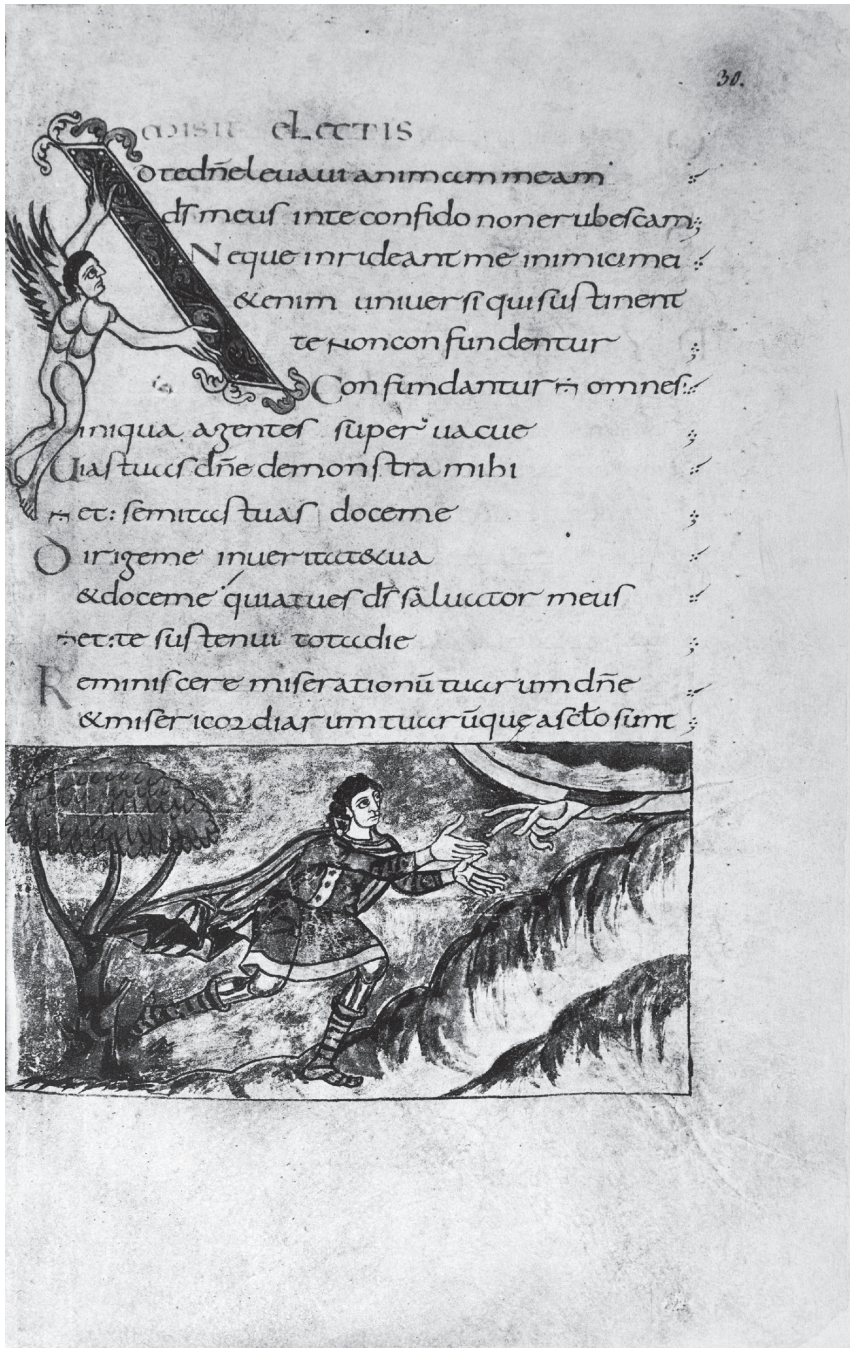 30.
electis
A dtedn̄e leuaui animam meam
ds̄ meus inte confido non erubescam;
Neque inrideant me inimici mei
&enim uniuersi qui sustinent
te non confundentur
Confundantur omnes:
iniqua agentes super uacue
Uias tuas dn̄e demonstra mihi
et: semitas tuas doceme
Dirigeme inueritat&ua
&doceme quia tues ds̄ saluator meus
et: te sustenui tota die
Reminiscere miserationū tuarum dn̄e
&misericordiarum tuarūque asclo sunt